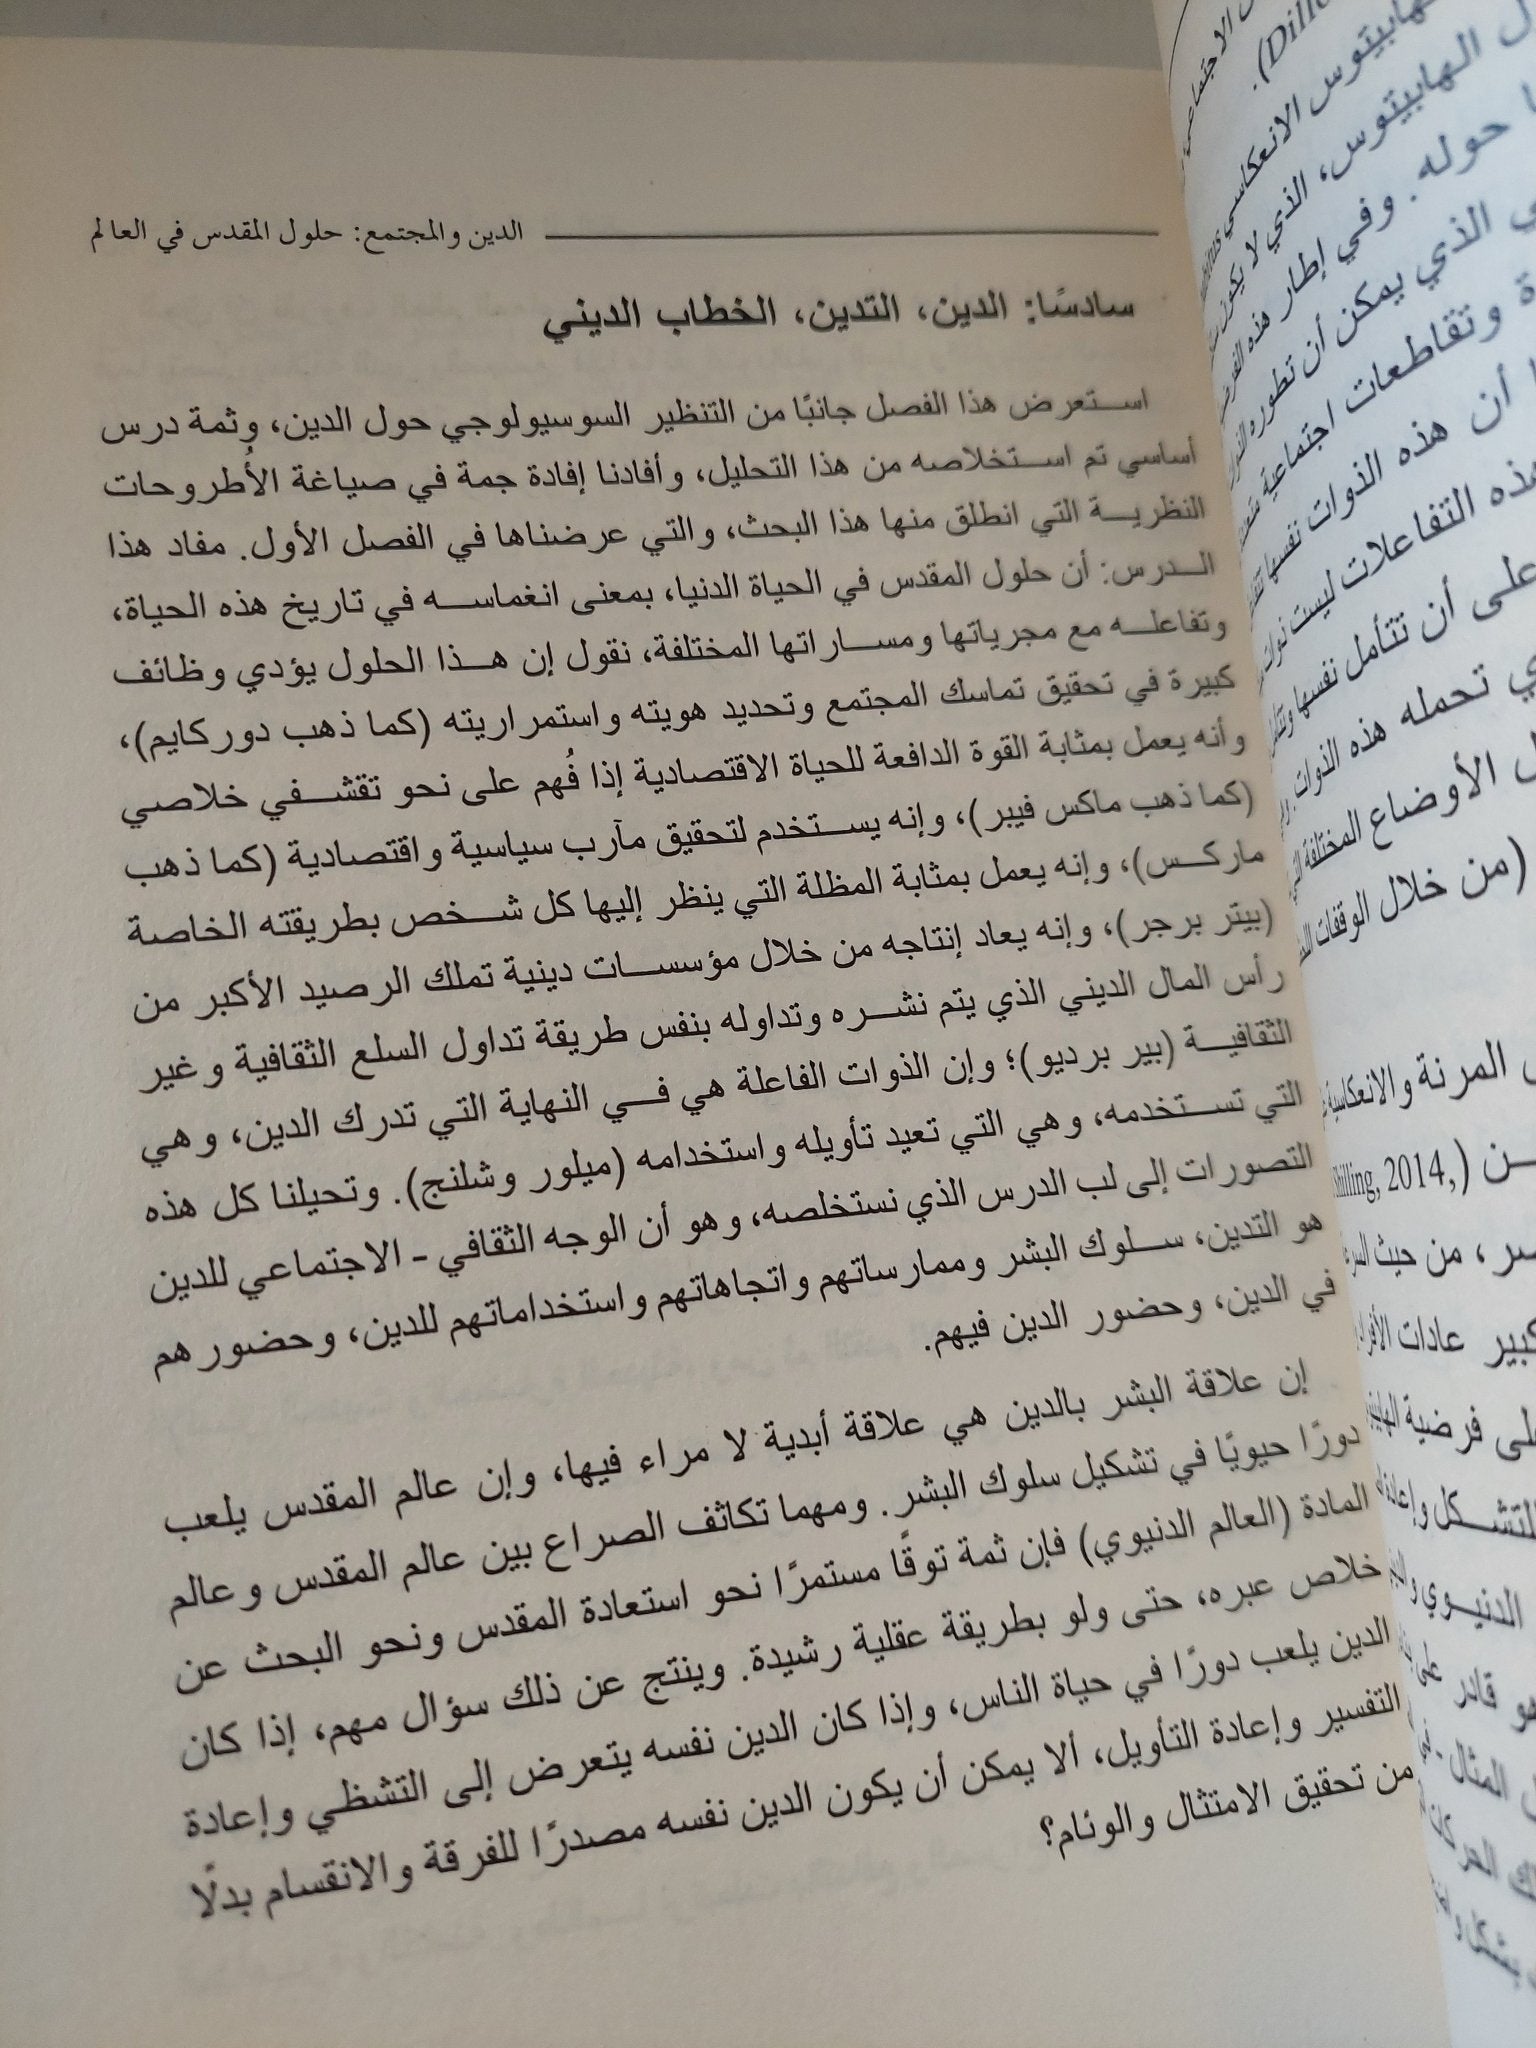 الدين والمجتمع: حلول المقدس في العالم
سادسًا: الدين، التدين، الخطاب الديني
استعرض هذا الفصل جانبًا من التنظير السوسيولوجي حول الدين، وثمة درس
أساسي تم استخلاصه من هذا التحليل، وأفادنا إفادة جمة في صياغة الأُطروحات
النظرية التي انطلق منها هذا البحث، والتي عرضناها في الفصل الأول. مفاد هذا
الدرس: أن حلول المقدس في الحياة الدنيا، بمعنى انغماسه في تاريخ هذه الحياة،
وتفاعله مع مجرياتها ومساراتها المختلفة، نقول إن هذا الحلول يؤدي وظائف
كبيرة في تحقيق تماسك المجتمع وتحديد هويته واستمراريته (كما ذهب دوركايم)،
وأنه يعمل بمثابة القوة الدافعة للحياة الاقتصادية إذا فُهم على نحو تقشفي خلاصي
(كما ذهب ماكس فيبر)، وإنه يستخدم لتحقيق مآرب سياسية واقتصادية (كما ذهب
ماركس)، وإنه يعمل بمثابة المظلة التي ينظر إليها كل شخص بطريقته الخاصة
(بيتر برجر)، وإنه يعاد إنتاجه من خلال مؤسسات دينية تملك الرصيد الأكبر من
رأس المال الديني الذي يتم نشره وتداوله بنفس طريقة تداول السلع الثقافية وغير
الثقافية (بير برديو)؛ وإن الذوات الفاعلة هي في النهاية التي تدرك الدين، وهي
التي تستخدمه، وهي التي تعيد تأويله واستخدامه (ميلور وشلنج). وتحيلنا كل هذه
التصورات إلى لب الدرس الذي نستخلصه، وهو أن الوجه الثقافي - الاجتماعي للدين
هو التدين، سلوك البشر وممارساتهم واتجاهاتهم واستخداماتهم للدين، وحضورهم
في الدين، وحضور الدين فيهم.
إن علاقة البشر بالدين هي علاقة أبدية لا مراء فيها، وإن عالم المقدس يلعب
دورًا حيويًا في تشكيل سلوك البشر. ومهما تكاثف الصراع بين عالم المقدس وعالم
المادة (العالم الدنيوي) فإن ثمة توقًا مستمرًا نحو استعادة المقدس ونحو البحث عن
خلاص عبره، حتى ولو بطريقة عقلية رشيدة. وينتج عن ذلك سؤال مهم، إذا كان
الدين يلعب دورًا في حياة الناس، وإذا كان الدين نفسه يتعرض إلى التشظي وإعادة
التفسير وإعادة التأويل، ألا يمكن أن يكون الدين نفسه مصدرًا للفرقة والانقسام بدلًا
من تحقيق الامتثال والوئام؟
الهابيتوس الانعكاسي
الهابيتوس، الذي لا يكون
حوله. وفي إطار هذه
الذي يمكن أن تطوره
وتقاطعات اجتماعية
أن هذه الذوات نفسها
هذه التفاعلات ليست
على أن تتأمل نفسها
تحمله هذه الذوات
الأوضاع المختلفة
(من خلال الوقفات
المرنة والانعكاسية
2014,)
من حيث
كبير عادات
على فرضية
الدنيوي
هو قادر على
المثال